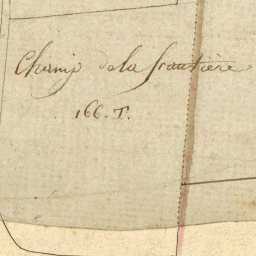 Champ de la frautière
166. T.